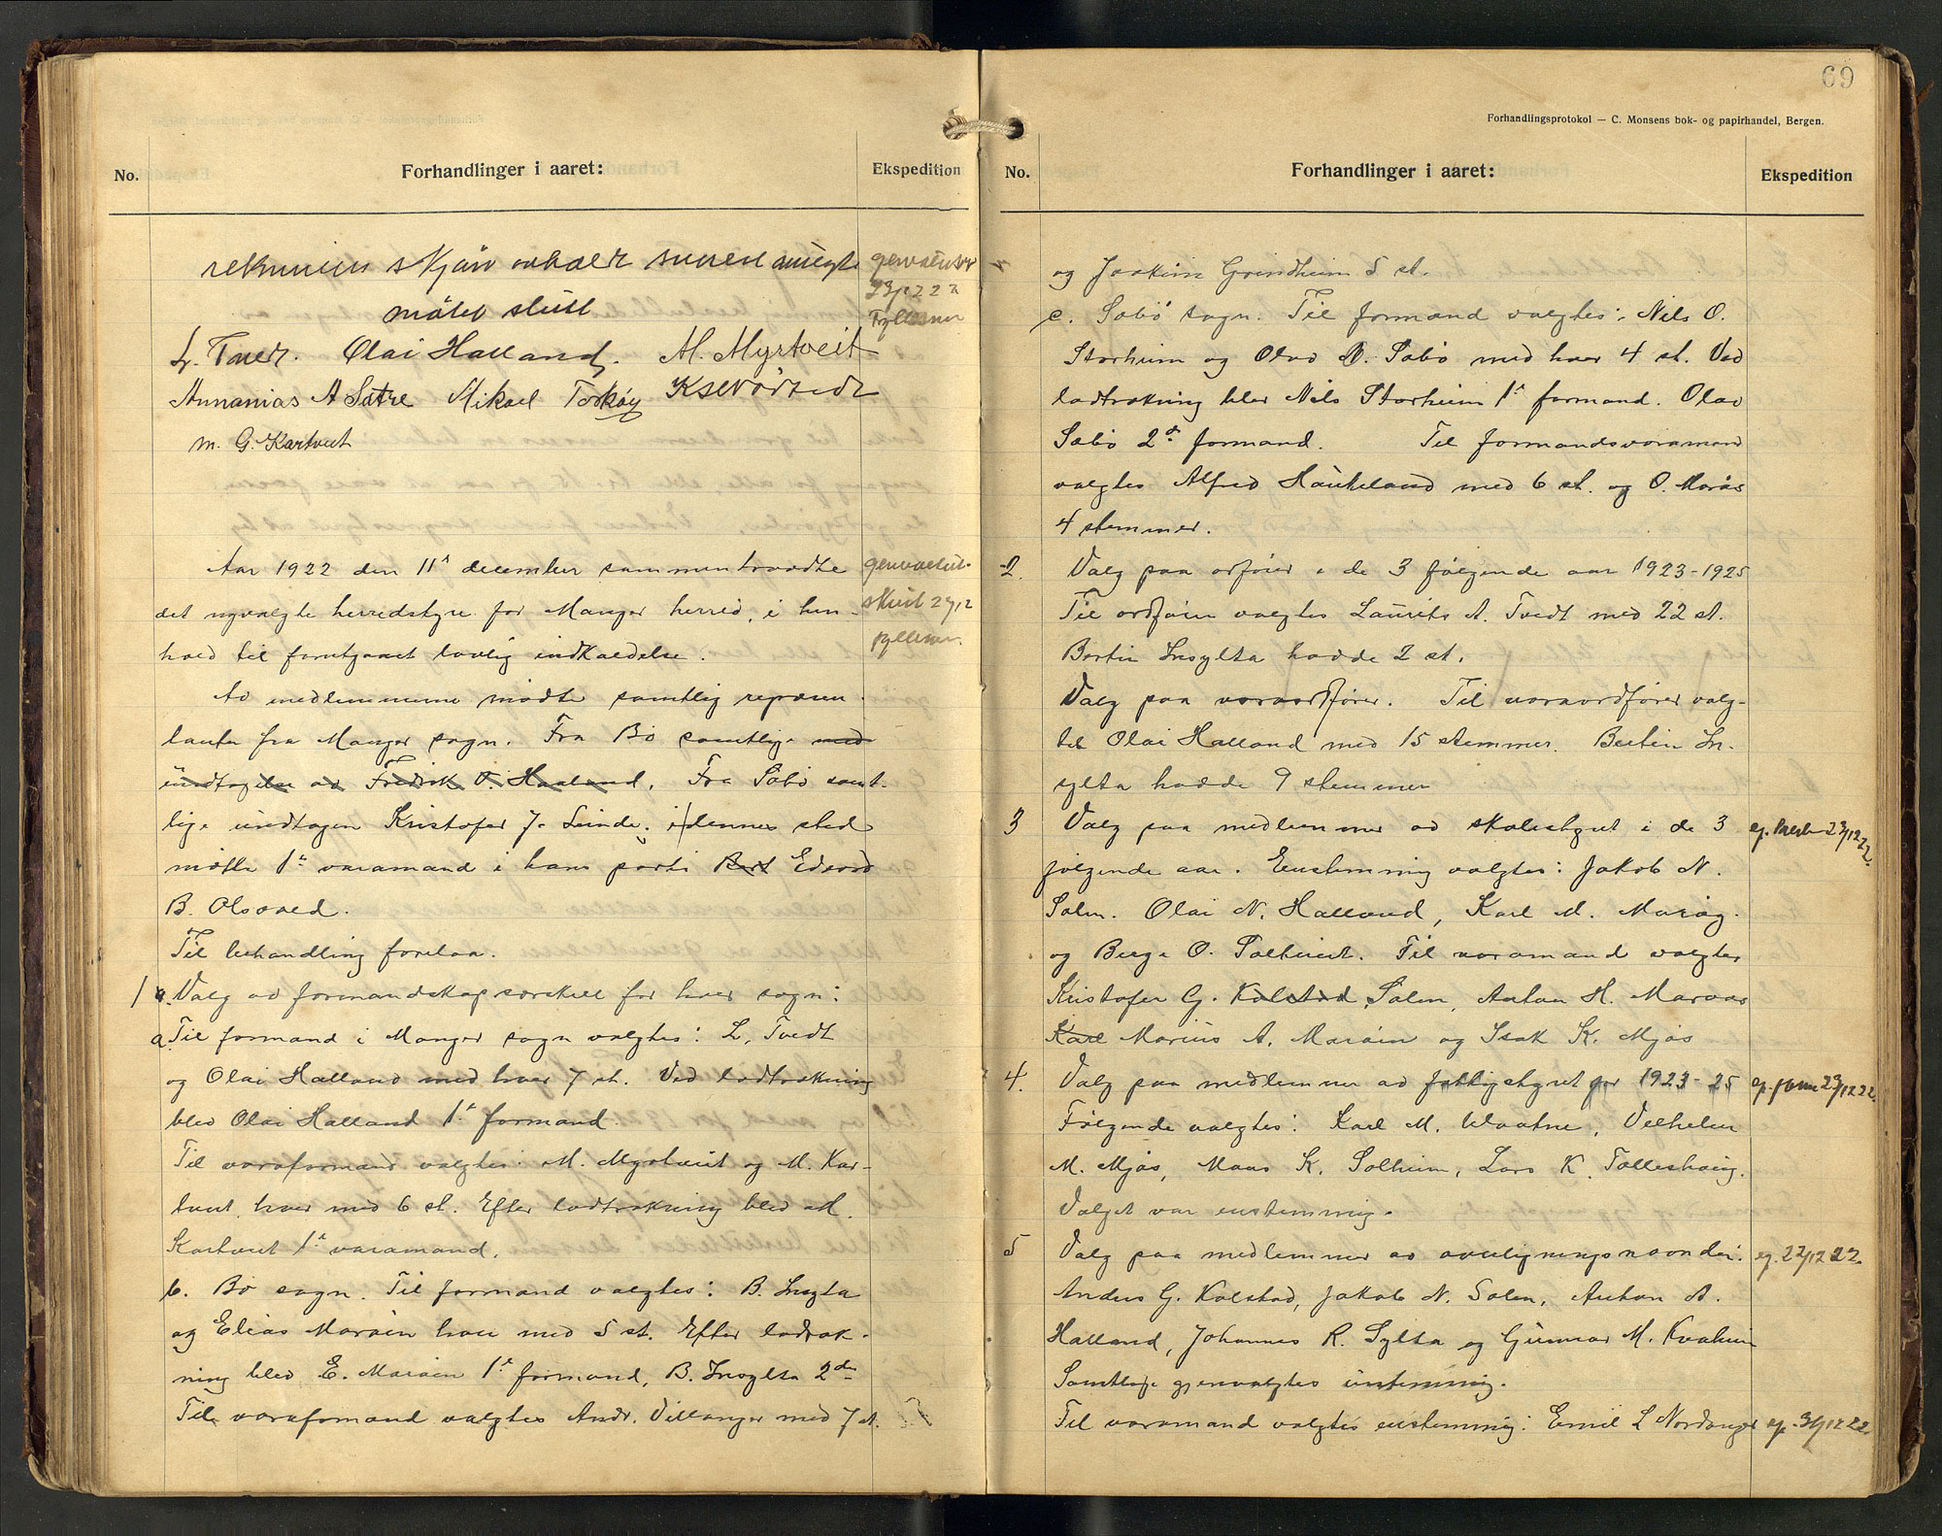 No.
Forhandlinger i aaret:
Ekspedition
skjøn
møtet slutt
L. Tvedt. Olai Halland. M. Myrtveit
Annanias A Sætre Mikael Toskøy
M. G. Kartveit
Aar 1922 den 11te december sammentraadte
det nyvalgte herredstyre for Manger herred, i hen-
hold til foretgaaet lovlig indkaldelse.
Av medlemmerne mødte samtlig repræsen-
tanter fra Manger sogn. Fra Bø samtlige med
undtagelse av Fredrik O. Haaland. Fra Sæbø samt-
lige undtagen Kristofer J. Leinde. i dennes sted
møtte 1ste varamand i hans parti Bert Edvard
B. Olsvoll.
Til behandling forelaa.
1 Valg av formandskap særskilt for hver sogn:
a. Til formand i Manger sogn valgtes: L. Tvedt
og Olai Halland med hver 7 st. Ved lodtrækning
blev Olai Halland 1ste formand.
Til varaformand valgtes M. Myrtveit og M. Kar-
tveit hver med 6 st. Efter lodtrækning blev M.
Kartveit 1ste varamand.
b. Bø sogn. Til formand valgtes: B. Insylta
og Elias Marøen hver med 5 st. Efter lodtræk-
ning blev E. Marøen 1ste formand, B. Insylta 2den
Til varaformand valgtes Andr. Villanger med 7 st.
69
Forhandlingsprotokol — C. Monsens bok- og papirhandel, Bergen.
No.
Forhandlinger i aaret:
Ekspedition
og Joakim Grindheim 5 st.
c. Sæbø sogn. Til formand valgtes: Nils O.
Storheim og Olav O. Sæbø med hver 4 st. Ved
lodtrækning blev Nils Storheim 1ste formand. Olav
Sæbø 2den formand. Til formandsvaramand
valgtes Alfred Haukeland med 6 st. og O. Marås
4 stemmer.
2. Valg paa ordfører i de 3 følgende aar 1923-1925
Til ordfører valgtes Laurits A. Tvedt med 22 st.
Bertin Insylta hadde 2 st.
Valg paa varaordfører. Til varaordfører valg-
tes Olai Halland med 15 stemmer. Bertin In-
sylta hadde 9 stemmer
3 Valg paa medlemmer av skolestyret i de 3
følgende aar. Enstemmig valgtes: Jakob N.
Solem. Olai N. Halland, Karl M. Marøy.
og Berge O. Soltveit. Til varamand valgtes
Kristofer G. Kolstad Solem, Anton H. Maraas
Karl Marius A. Marøen og Isak K. Mjøs
4. Valg paa medlemmer av fattigstyret for 1923-25
Følgende valgtes: Karl M. Vaatne, Vilhelm
M. Mjøs, Mons K. Solheim, Lars K. Tolleshaug.
Valget var enstemmig.
5 Valg paa medlemmer av overligningsnævnden: ep. 27/12 22.
Anders G. Kolstad, Jakob N. Solem, Anton A.
Halland, Johannes R. Sylta og Gunnar M. Kvalheim
Samtlige gjenvalgtes enstemmig.
Til varamand valgtes enstemmig: Emil L Nordanger